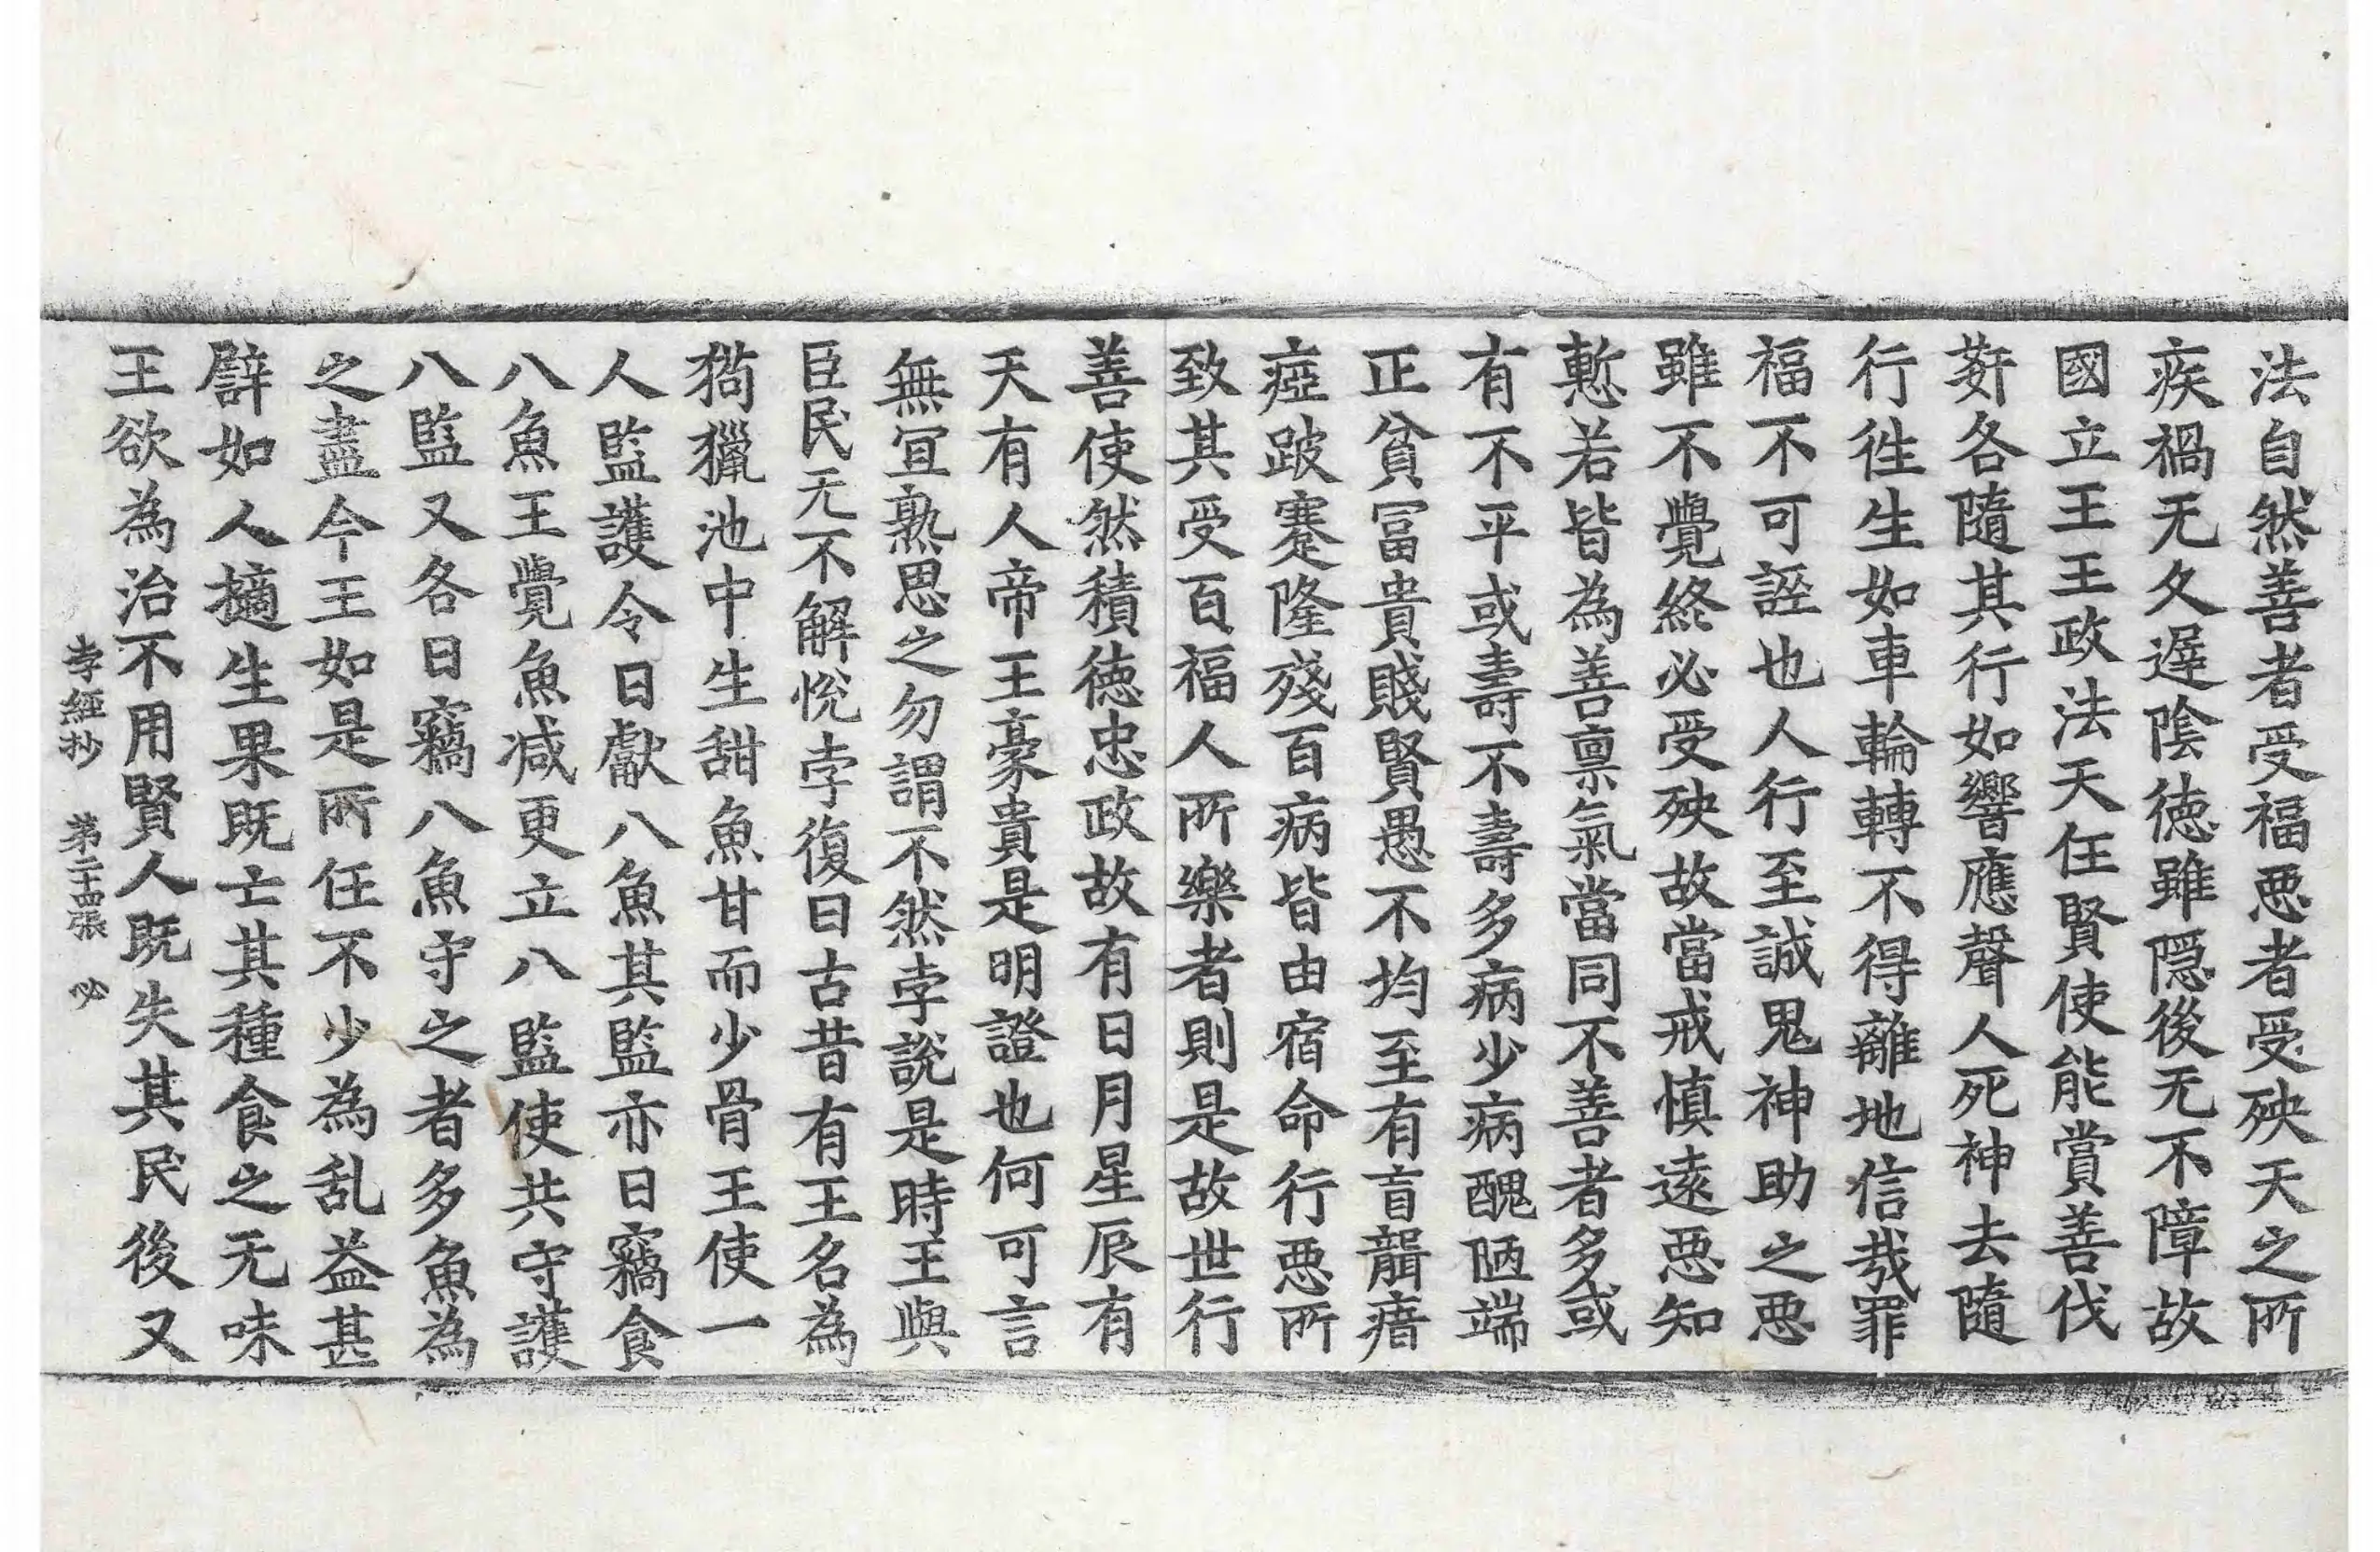 法自然善者受福惡者受殃天之所
疾禍无久遲陰徳雖隱後无不障故
國立王王政法天任賢使能賞善伐
姧各隨其行如響應聲人死神去隨
行徃生如車輪轉不得離地信哉罪
福不可誣也人行至誠鬼神助之惡
雖不覺終必受殃故當戒慎遠惡知
慙若皆為善禀氣當同不善者多或
有不平或壽不壽多病少病醜陋端
正貧冨貴賤賢愚不均至有盲聾瘖
瘂跛蹇隆殘百病皆由宿命行惡所
致其受百福人所樂者則是故世行
善使然積徳忠政故有日月星辰有
天有人帝王豪貴是明證也何可言
無宜熟思之勿謂不然孛說是時王與
臣民无不解恱孛復曰古昔有王名為
狗獵池中生甜魚甘而少骨王使一
人監護令日獻八魚其監亦日竊食
八魚王覺魚减更立八監使共守護
八監又各日竊八魚守之者多魚為
之盡今王如是所任不少為乱益甚
辟如人摘生果既亡其種食之无味
王欲為治不用賢人既失其民後又
孛經抄 第二十四張 必